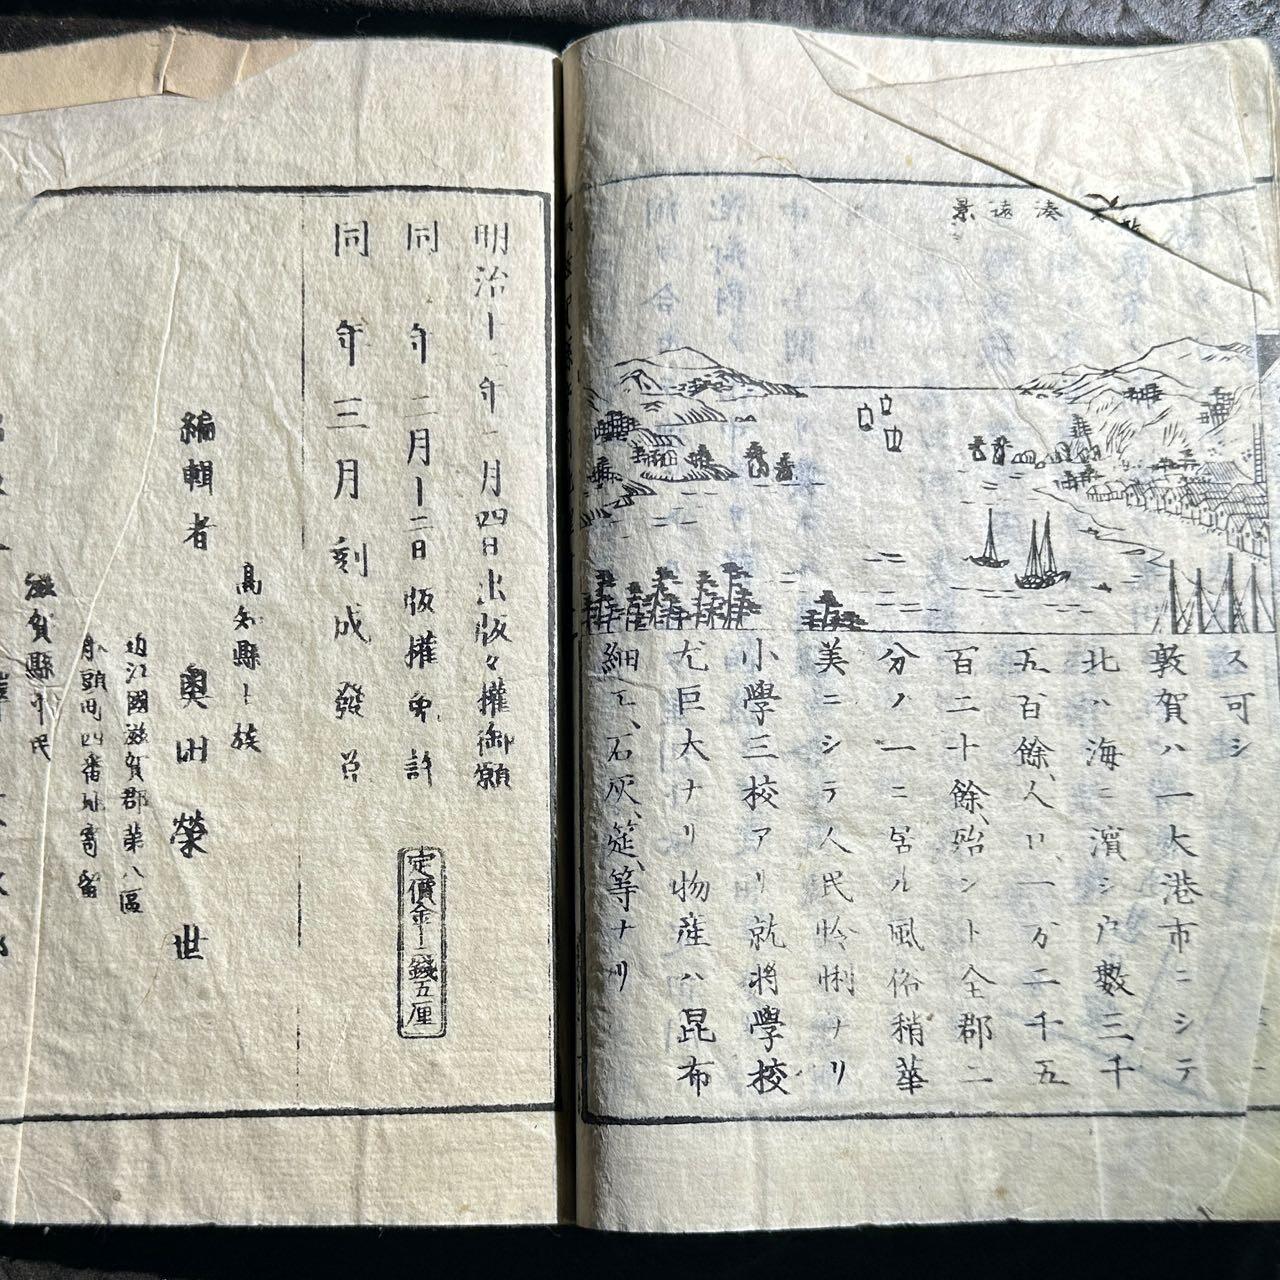 湊遠景
ス可シ
敦賀ハ一大港市ニシテ
北ハ海ニ濱シ戸數三千
五百餘、人口、一万二千五
百二十餘、殆ント全郡ニ
分ノ一ニ居ル風俗稍華
美ニシテ人民怜悧ナリ
小學三校アリ就將學校
尤巨大ナリ物産ハ昆布
細工、石灰、筵、等ナリ
明治十二年一月四日出版々權御願
同年二月十二日版權免許
同年三月刻成發兌
定價金十二錢五厘
高知縣士族
編輯者 奥田榮世
近江國滋賀郡第八區
滋賀縣平民